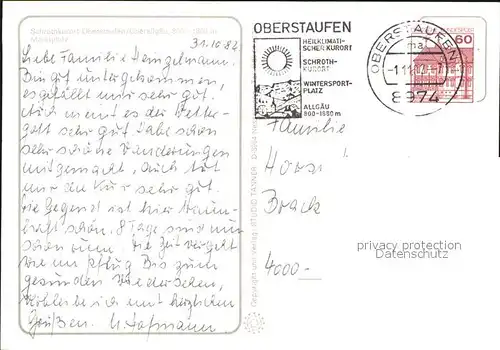 Schrothkurort Oberstaufen/Oberallgäu, 800-1800 m
31.10.82
Liebe Familie Hengelmann.
Bin gut untergekommen,
es gefällt mir sehr gut.
Auch meint es der Wetter-
gott sehr gut. Habe schon
sehr schöne Wanderungen
mitgemacht, auch tut
mir die Kur sehr gut.
Die Gegend ist hier traum-
haft schön. 8 Tage sind nun
schon rum. Die Zeit vergeht
wie im Pflug. Bis zum
gesunden Wiedersehen,
verbleibe ich mit herzlichen
Grüßen. H. Hofmann
OBERSTAUFEN
HEILKLIMATI-
SCHER KURORT
SCHROTH-
KURORT
WINTERSPORT-
PLATZ
ALLGÄU
800-1550 m
OBERSTAUFEN
8974
60
Familie
Horst
Brack
4000
privacy protection
Datenschutz
Copyright und Verlag: STUDIO TANNER